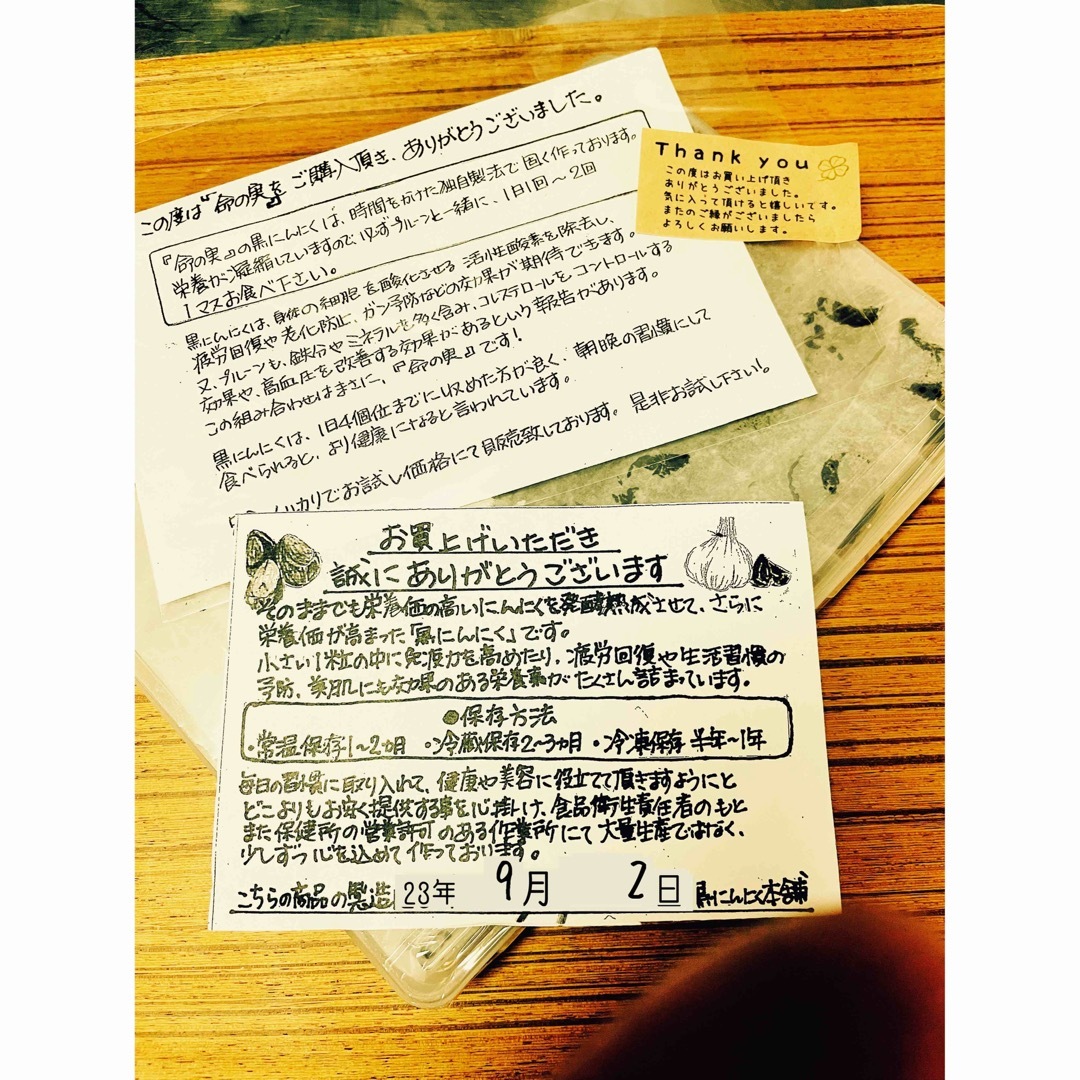 この度は『命の実』をご購入頂き、ありがとうございました。
『命の実』の黒にんにくは、時間をかけた独自製法で固く作っております。
栄養が凝縮していますので、必ずプルーンと一緒に、1日1回〜2回
1マスお食べ下さい。
黒にんにくは、身体の細胞を酸化させる活性酸素を除去し、
疲労回復や老化防止、ガン予防などの効果が期待できます。
又、プルーンも、鉄分やミネラルを多く含み、コレステロールをコントロールする
効果や、高血圧を改善する効果があるという報告があります。
この組み合わせはまさに、『命の実』です!
黒にんにくは、1日4個位までに収めた方が良く、朝晩の習慣にして
食べられると、より健康になると言われています。
メルカリでお試し価格にて販売致しております。是非お試し下さい!。
Thank you
この度はお買い上げ頂き
ありがとうございました。
気に入って頂けると嬉しいです。
またのご縁がございましたら
よろしくお願いします。
お買上げいただき
誠にありがとうございます
そのままでも栄養価の高いにんにくを発酵熟成させて、さらに
栄養価が高まった「黒にんにく」です。
小さい1粒の中に免疫力を高めたり、疲労回復や生活習慣の
予防、美肌にも効果のある栄養素がたくさん詰まっています。
●保存方法
・常温保存1〜2カ月 ・冷蔵保存2〜3カ月 ・冷凍保存 半年〜1年
毎日の習慣に取り入れて、健康や美容に役立てて頂きますようにと
どこよりもお安く提供する事を心掛け、食品衛生責任者のもと
また保健所の営業許可のある作業所にて大量生産ではなく、
少しずつ心を込めて作っております。
こちらの商品の製造 23年 9月 2日 黒にんにく本舗